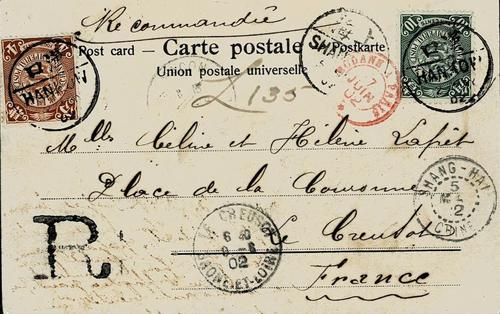 Recommandée
Post card — Carte postale — Postkarte
Union postale universelle
HANKOW
02
SHA
MODANE A PARIS
7
JUIN
02
HANKOW
02
£ 135
Mlls Céline et Hélène Laprêt
Place de la Couronne
SHANG-HAI
5
2
CHINE
R
LE CREUSOT
6 30
9 - 6
02
SAONE-ET-LOIRE
Le Creusot
France